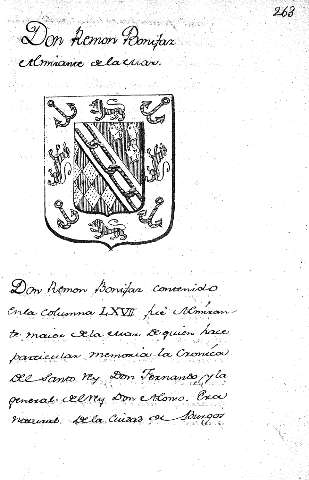 263
Don Remon Bonifaz
Almirante de la mar.
Don Remon Bonifaz contenido
en la columna LXVII fue Almiran-
te maior de la mar. De quien hace
particular memoria la Cronica
del Santo Rey Don Fernando, y la
general del Rey Don Alonso. Era
natural de la Ciudad de Burgos